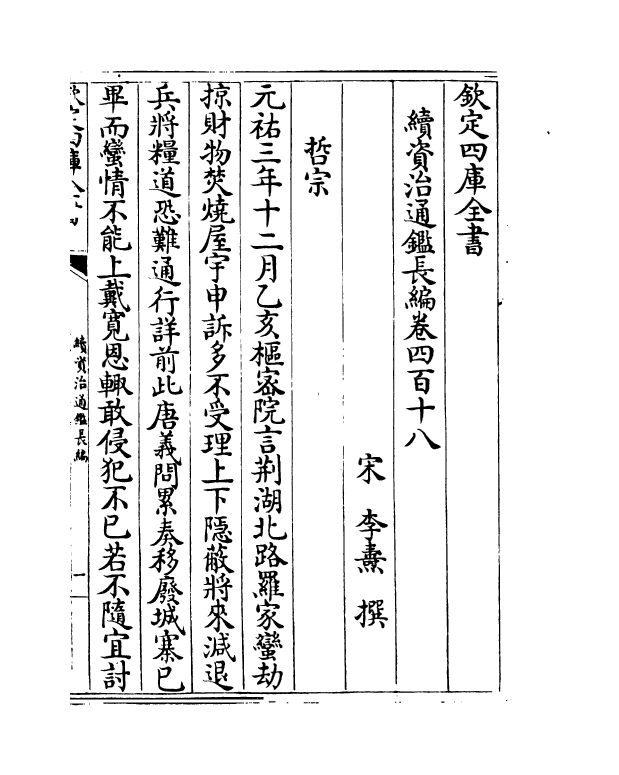 欽定四庫全書
續資治通鑑長編卷四百十八
宋 李燾 撰
哲宗
元祐三年十二月乙亥樞密院言荆湖北路羅家蠻劫
掠財物焚燒屋宇申訴多不受理上下隱蔽將來減退
兵將糧道恐難通行詳前此唐義問累奏移廢城寨已
畢而蠻情不能上戴寛恩輙敢侵犯不已若不隨宜討
續資治通鑑長編
一